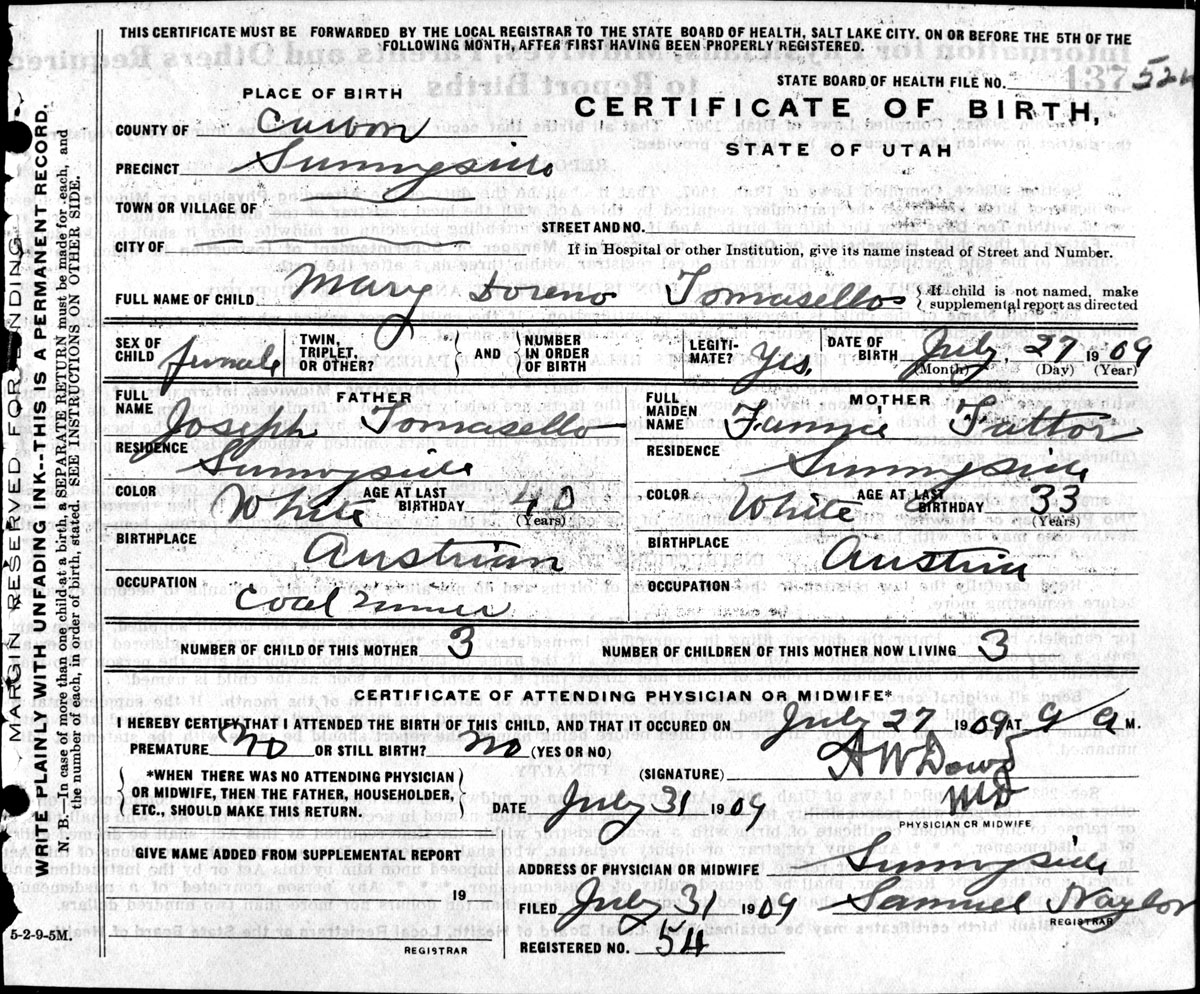 THIS CERTIFICATE MUST BE FORWARDED BY THE LOCAL REGISTRAR TO THE STATE BOARD OF HEALTH, SALT LAKE CITY. ON OR BEFORE THE 5TH OF THE
FOLLOWING MONTH, AFTER FIRST HAVING BEEN PROPERLY REGISTERED.
STATE BOARD OF HEALTH FILE NO. 137 524
PLACE OF BIRTH
CERTIFICATE OF BIRTH,
STATE OF UTAH
COUNTY OF Carbon
PRECINCT Sunnyside
TOWN OR VILLAGE OF
STREET AND NO.
CITY OF
If in Hospital or other Institution, give its name instead of Street and Number.
FULL NAME OF CHILD Mary Doreno Tomasello
{If child is not named, make
supplemental report as directed
SEX OF CHILD female
TWIN, TRIPLET, OR OTHER?
AND
NUMBER IN ORDER OF BIRTH
LEGITI-MATE? Yes.
DATE OF BIRTH July 27 1909
(Month) (Day) (Year)
FATHER
FULL NAME Joseph Tomasello
RESIDENCE Sunnyside
COLOR White AGE AT LAST BIRTHDAY 40
(Years)
BIRTHPLACE Austrian
OCCUPATION
Coal miner
MOTHER
FULL MAIDEN NAME Fannie Fattor
RESIDENCE Sunnyside
COLOR White AGE AT LAST BIRTHDAY 33
(Years)
BIRTHPLACE Austria
OCCUPATION
NUMBER OF CHILD OF THIS MOTHER 3 NUMBER OF CHILDREN OF THIS MOTHER NOW LIVING 3
CERTIFICATE OF ATTENDING PHYSICIAN OR MIDWIFE*
I HEREBY CERTIFY THAT I ATTENDED THE BIRTH OF THIS CHILD, AND THAT IT OCCURED ON July 27 1909 AT 9 A M.
PREMATURE No OR STILL BIRTH? No (YES OR NO)
*WHEN THERE WAS NO ATTENDING PHYSICIAN
OR MIDWIFE, THEN THE FATHER, HOUSEHOLDER,
ETC., SHOULD MAKE THIS RETURN.
(SIGNATURE) A W Dowd
MD
DATE July 31 1909
PHYSICIAN OR MIDWIFE
GIVE NAME ADDED FROM SUPPLEMENTAL REPORT
19
REGISTRAR
ADDRESS OF PHYSICIAN OR MIDWIFE Sunnyside
FILED July 31 1909 Samuel Naylor
REGISTRAR
REGISTERED NO. 54
5-2-9-5M.
MARGIN RESERVED FOR BINDING
WRITE PLAINLY WITH UNFADING INK--THIS IS A PERMANENT RECORD.
N. B.—In case of more than one child at a birth, a SEPARATE RETURN must be made for each, and
the number of each, in order of birth, stated. SEE INSTRUCTIONS ON OTHER SIDE.